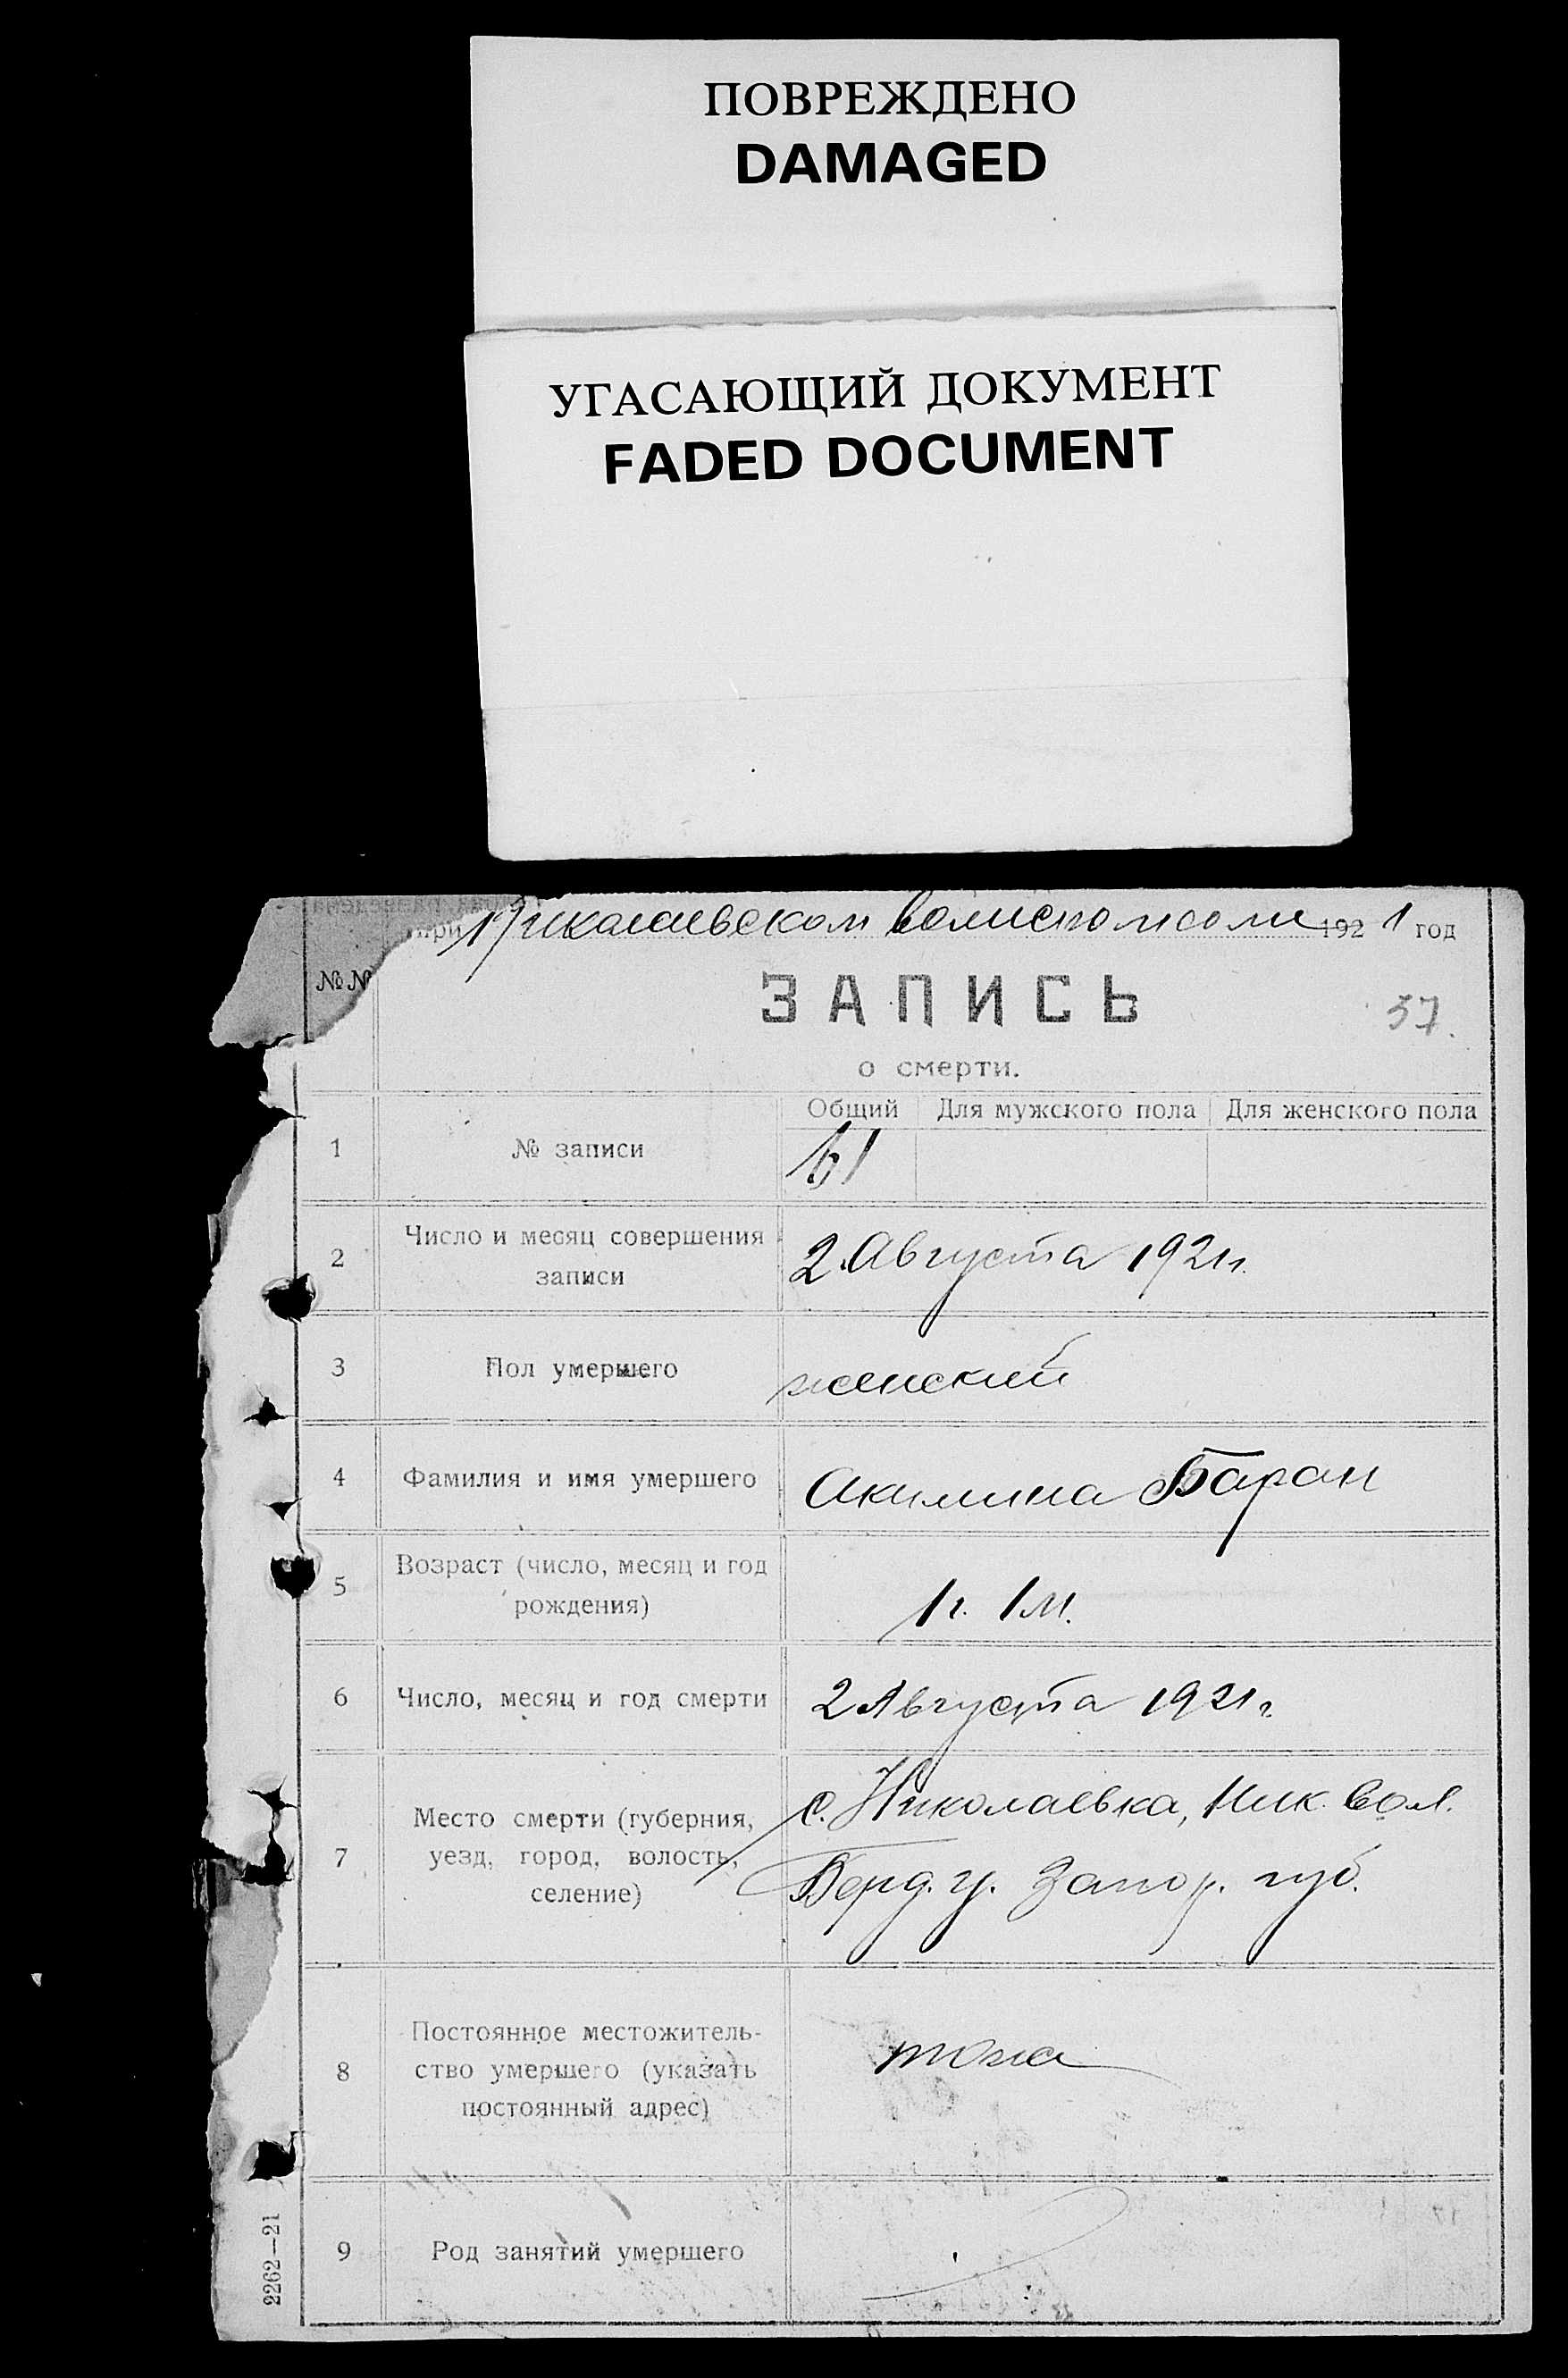 ПОВРЕЖДЕНО
DAMAGED
УГАСАЮЩИЙ ДОКУМЕНТ
FADED DOCUMENT
при Николаевском волисполкоме 1921 год
№ №
ЗАПИСЬ
37.
о смерти.
Общий Для мужского пола Для женского пола
1 № записи 61
2 Число и месяц совершения
записи
2. Августа 1921 г.
3 Пол умершего женский
4 Фамилия и имя умершего Акилина Баран
5 Возраст (число, месяц и год
рождения)
1 г. 1 м.
6 Число, месяц и год смерти 2 Августа 1921 г.
7 Место смерти (губерния,
уезд, город, волость,
селение)
с. Николаевка, Ник. вол.
Берд. у. Запор. губ.
8 Постоянное местожитель-
ство умершего (указать
постоянный адрес)
тоже
9 Род занятий умершего
2262—21